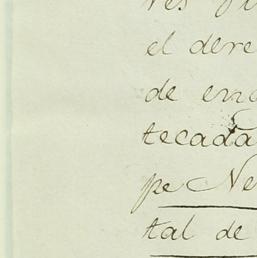 el dere
de ena
tecada
pe Ne
tal de